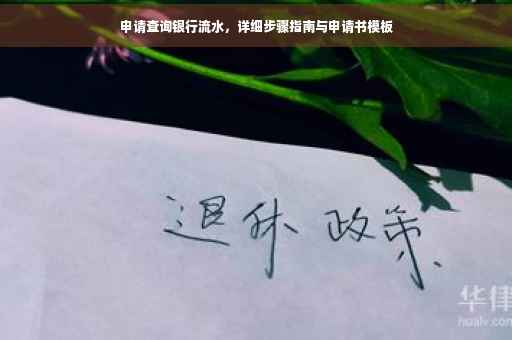 申请查询银行流水，详细步骤指南与申请书模板
退休 政策
华律
hualv.com